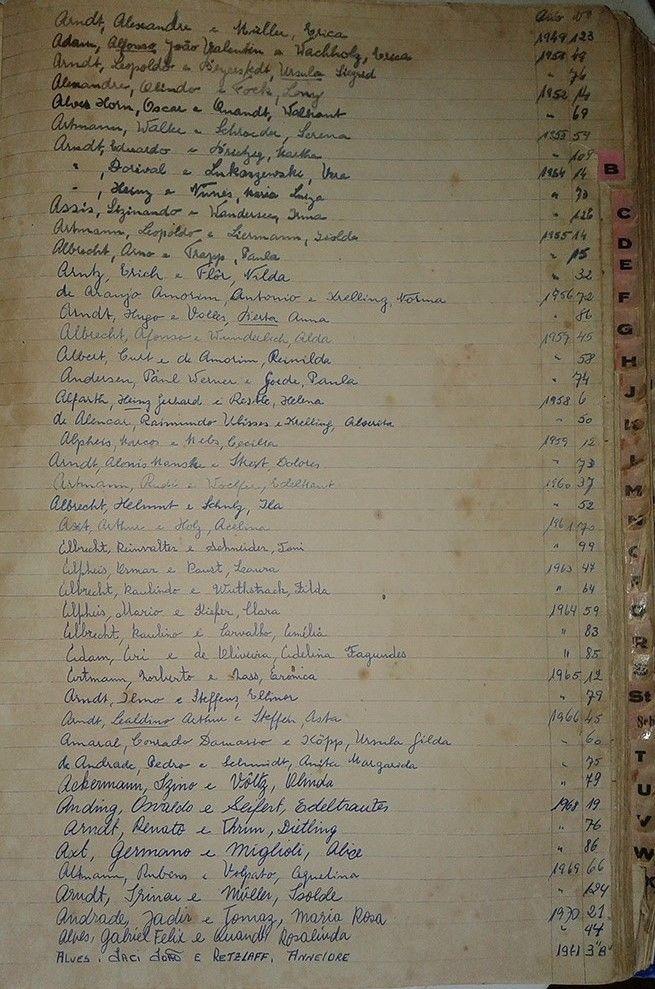 Ano Nº
Arndt, Alexandre e Müller, Erica 1949 123
Adam, Alfonso João Valentin e Wachholz, Erica 1950 49
Arndt, Leopoldo e Beyerstedt, Ursula Sigrid " 76
Alexandre, Olindo e Pock, Lony 1952 14
Alves Horn, Oscar e Quandt, Waltraut " 69
Artmann, Walter e Schroeder, Serena 1953 59
Arndt, Eduardo e Kreitzig, Marta " 109
" , Dorival e Lukaszewski, Vera 1954 14
" , Heinz e Nunes, Maria Luiza " 73
Assis, Sizinando e Wandersee, Irma " 126
Artmann, Leopoldo e Liermann, Isolda 1955 14
Albrecht, Arno e Trapp, Paula " 15
Arntz, Erich e Flôr, Nilda " 32
de Araujo Amorim, Antonio e Krelling, Norma 1956 72
Arndt, Hugo e Volles, Herta Anna " 86
Albrecht, Afonso e Wunderlich, Alda 1957 45
Albert, Curt e de Amorim, Reinilda " 58
Andersen, Paul Werner e Goede, Paula " 74
Alfarth, Heinz Gerhard e Helena 1958 6
de Alencar, Raimundo Ulisses e Krelling, " 50
Marcos e Cecilia 1959 12
Arndt, Aloris Manske e Dolores " 73
Artmann, Rudi e Edeltraut 1960 37
Albrecht, Helmut e Schulz, Ila " 52
Axt, Arthur e Holz, Acelina 1961 70
Albrecht, Reinvalter e Schneider, Toni " 99
Alpheis, Osmar e Paust, Laura 1963 47
Albrecht, Raulindo e Wuthstrack, Hilda " 64
Alpheis, Mario e Kiefer, Clara 1964 59
Albrecht, Raulino e Carvalho, Emília " 83
Adam, Ari e de Oliveira, Edelina Fagundes " 85
Artmann, Norberto e Nass, Erônica 1965 12
Arndt, Ilmo e Steffens, Ellinor " 79
Arndt, Lealdino Arthur e Steffen, Asta 1966 45
Amaral, Conrado Damasio e Köpp, Ursula Gilda " 60
de Andrade, Pedro e Schmidt, Anita Margarida " 75
Ackermann, Izino e Völtz, Olinda " 79
Anding, Osvaldo e Seifert, Edeltrautes 1968 19
Arndt, Renato e Thrun, Dietling " 76
Axt, Germano e Miglioli, Alice " 86
Altmann, Rubens e Volpato, Aquelina 1969 66
Arndt, Irineu e Müller, Isolde " 124
Andrade, Jadir e Tomaz, Maria Rosa 1970 21
Alves, Gabriel Felix e Quandt Rosalinda " 44
ALVES, JACI JOÃO E RETZLAFF, ANNELORE 1971 3"B"
B
C
D
E
F
G
H
J
K
L
M
N
O
R
S
St
Sch
T
U
V
W